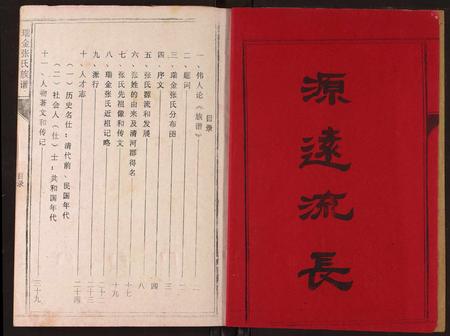 源遠流長
目录
一、伟人论《族谱》 一
二、题词
三、瑞金张氏分布图 三
四、序文 四
五、张氏源流和发展 八
六、张姓的由来及清河郡得名 十七
七、张氏先祖像和传文 十九
八、瑞金张氏近祖记略 二十二
九、派行 二十三
十、人才志 二十四
(一)历史名仕:清代前、民国年代
(二)社会人(仕)士:共和国年代
十一、人物著文和传记 三十九
瑞金张氏族谱
目录